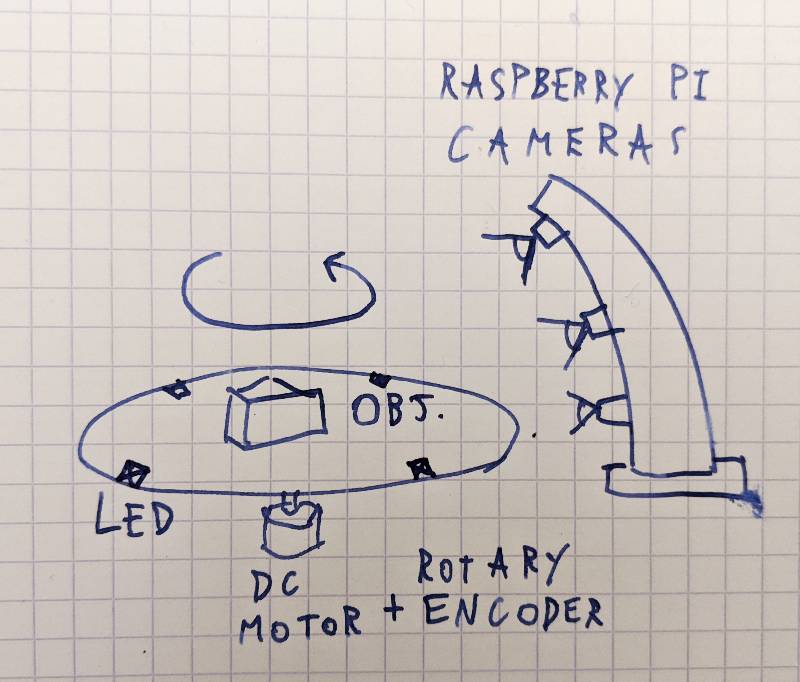 RASPBERRY PI
CAMERAS
OBJ.
LED
DC
MOTOR
+
ROTARY
ENCODER